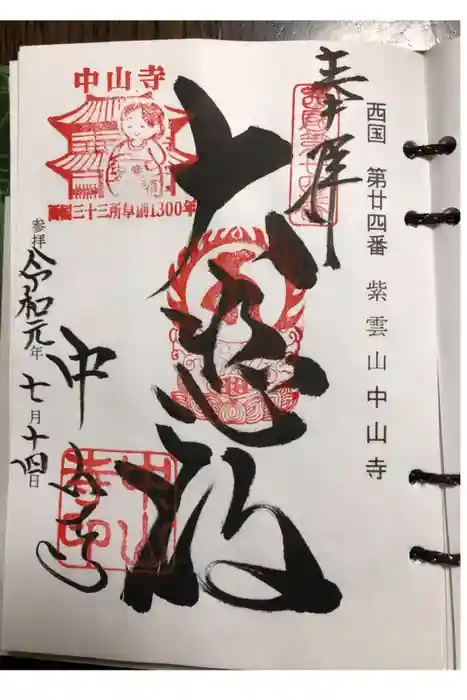 西国 第廿四番 紫雲山中山寺
奉拝
大悲殿
中山寺
西国三十三所草創1300年
参拝
令和元年七月十四日
中山寺